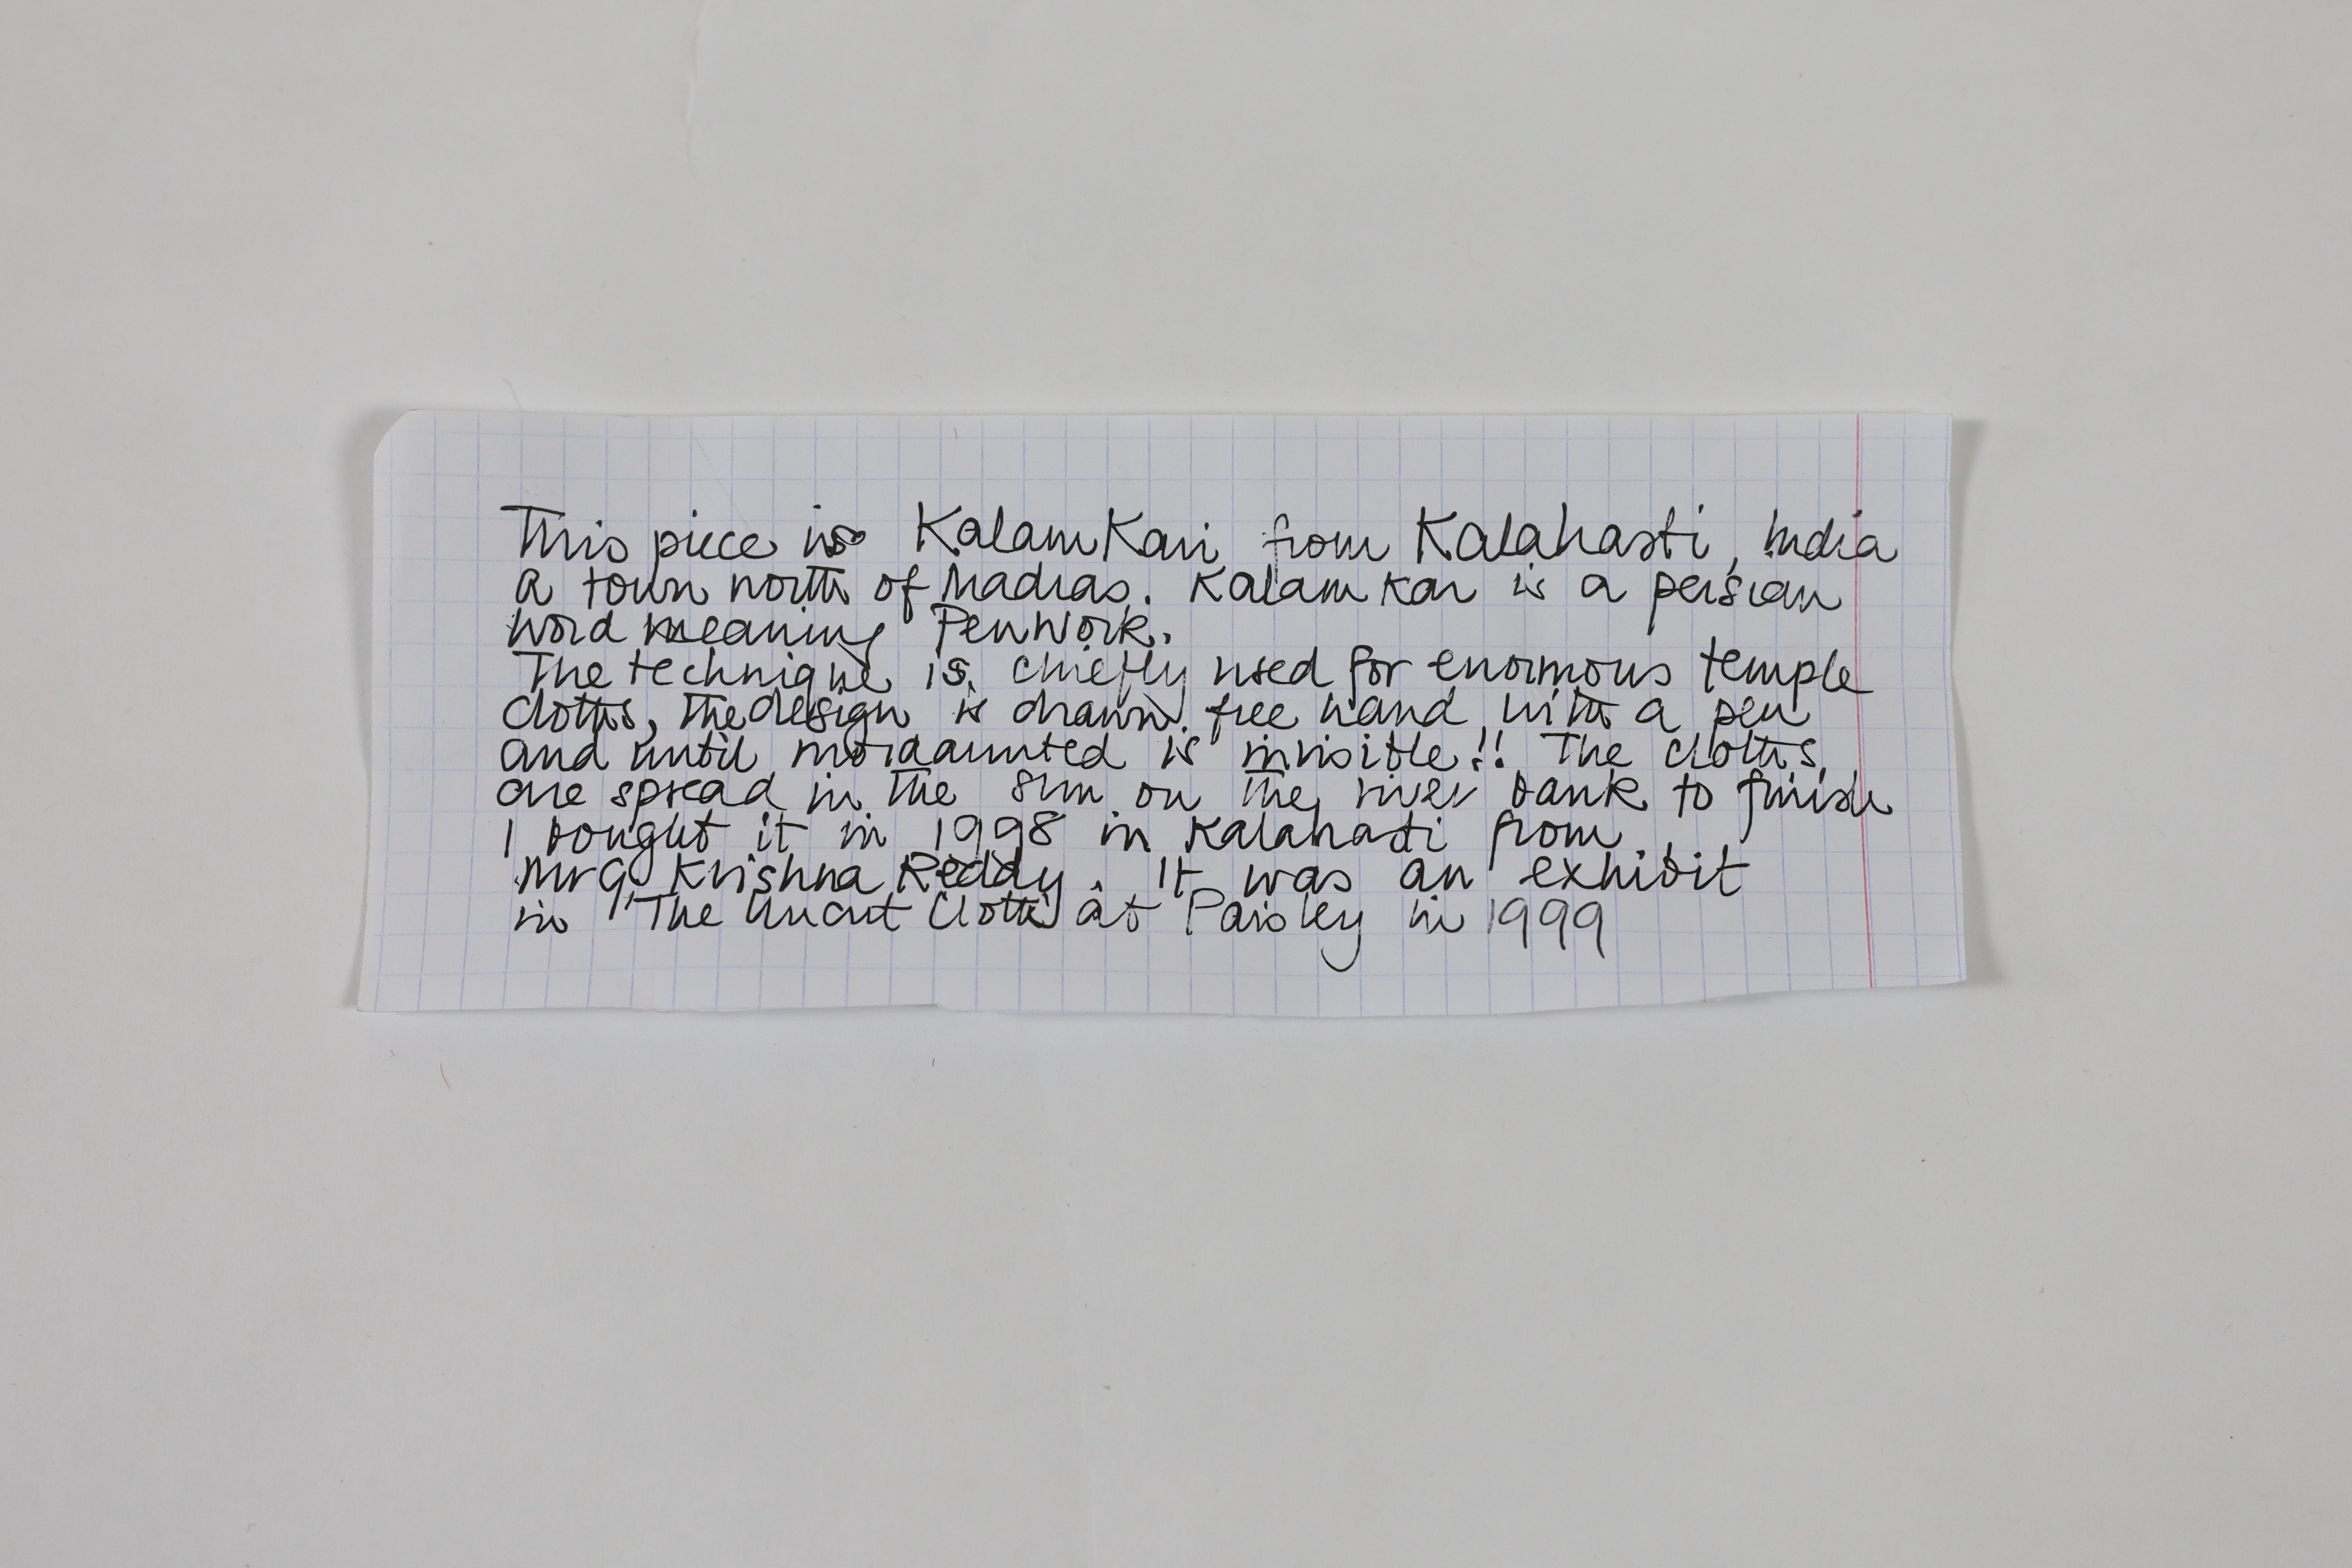 This piece is KalamKari from Kalahasti, India
a town north of Madras. Kalam kar is a persian
word meaning PenWork.
The technique is chiefly used for enormous temple
cloths, the design is drawn free hand with a pen
and until mordaunted is invisible!! The cloths
are spread in the sun on the river bank to finish
I bought it in 1998 in Kalahasti from
Mr G Krishna Reddy. It was an exhibit
in "The Uncut Cloth" at Paisley in 1999